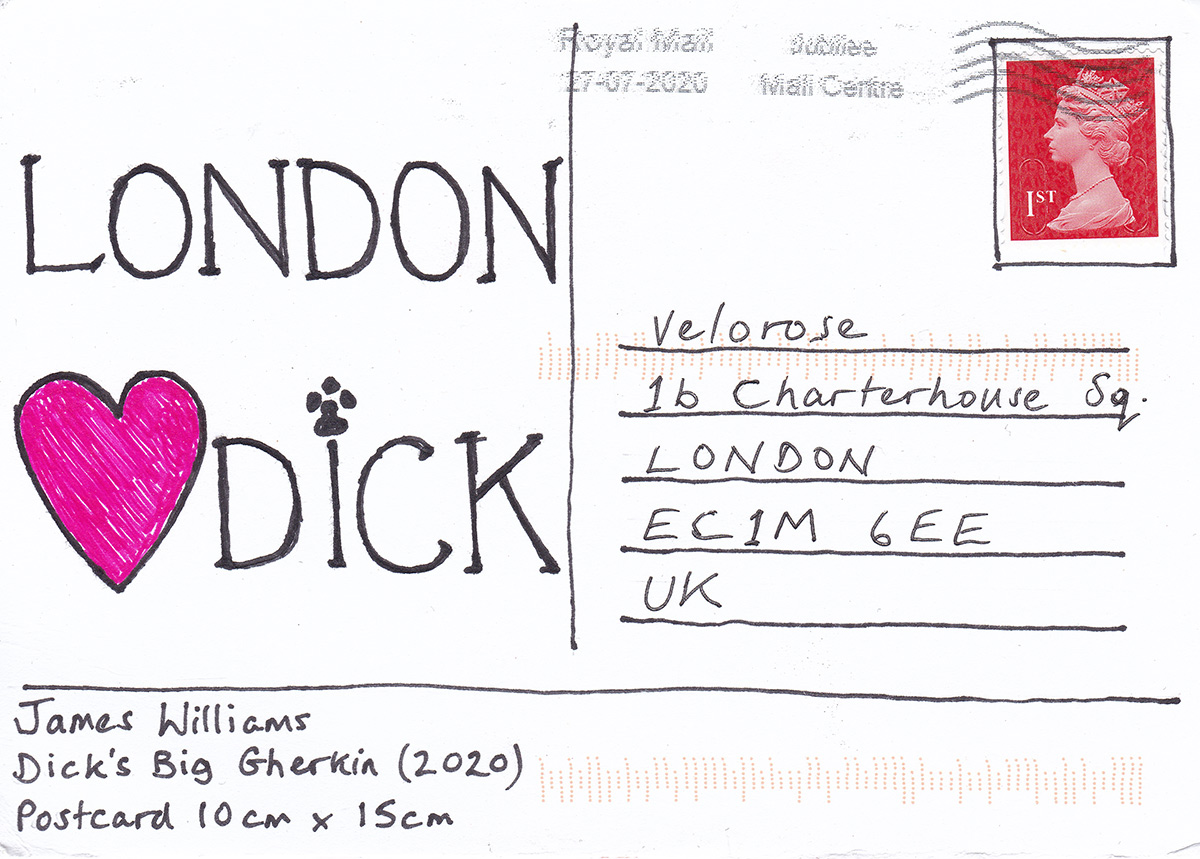 Royal Mail Jubilee
27-07-2020 Mail Centre
1ST
LONDON
DiCK
Velorose
1b Charterhouse Sq.
LONDON
EC1M 6EE
UK
James Williams
Dick's Big Gherkin (2020)
Postcard 10cm x 15cm